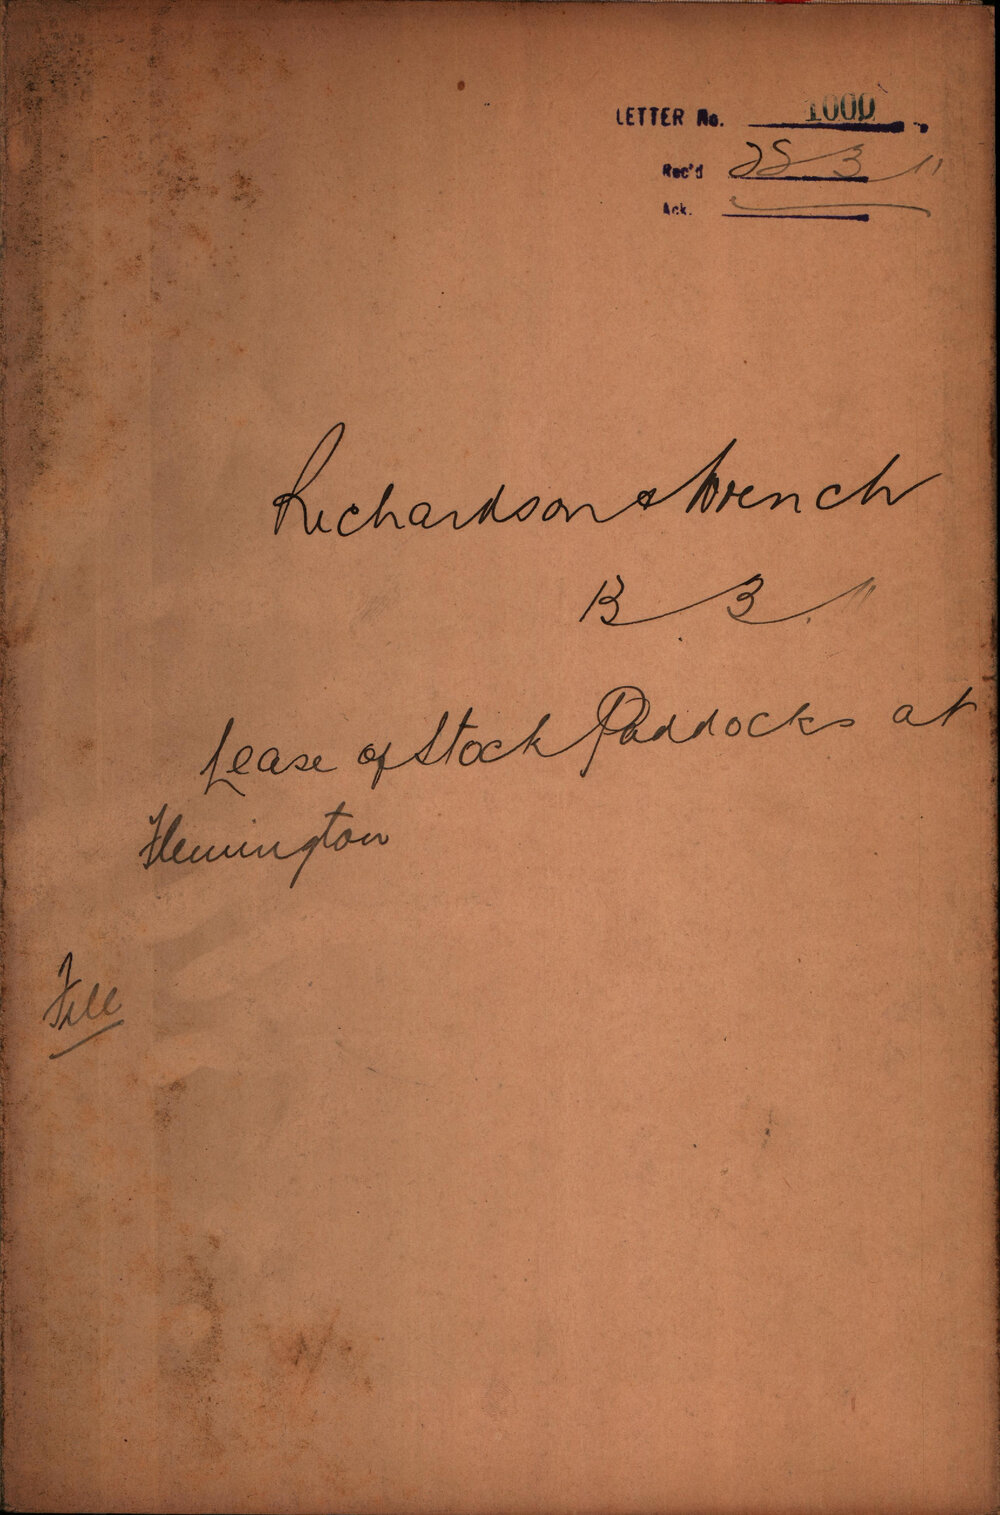 LETTER No. 1000
Rec'd 28 3 11
Ack.
Richardson & Wrench
13 3 11
Lease of Stock Paddocks at
Flemington
File